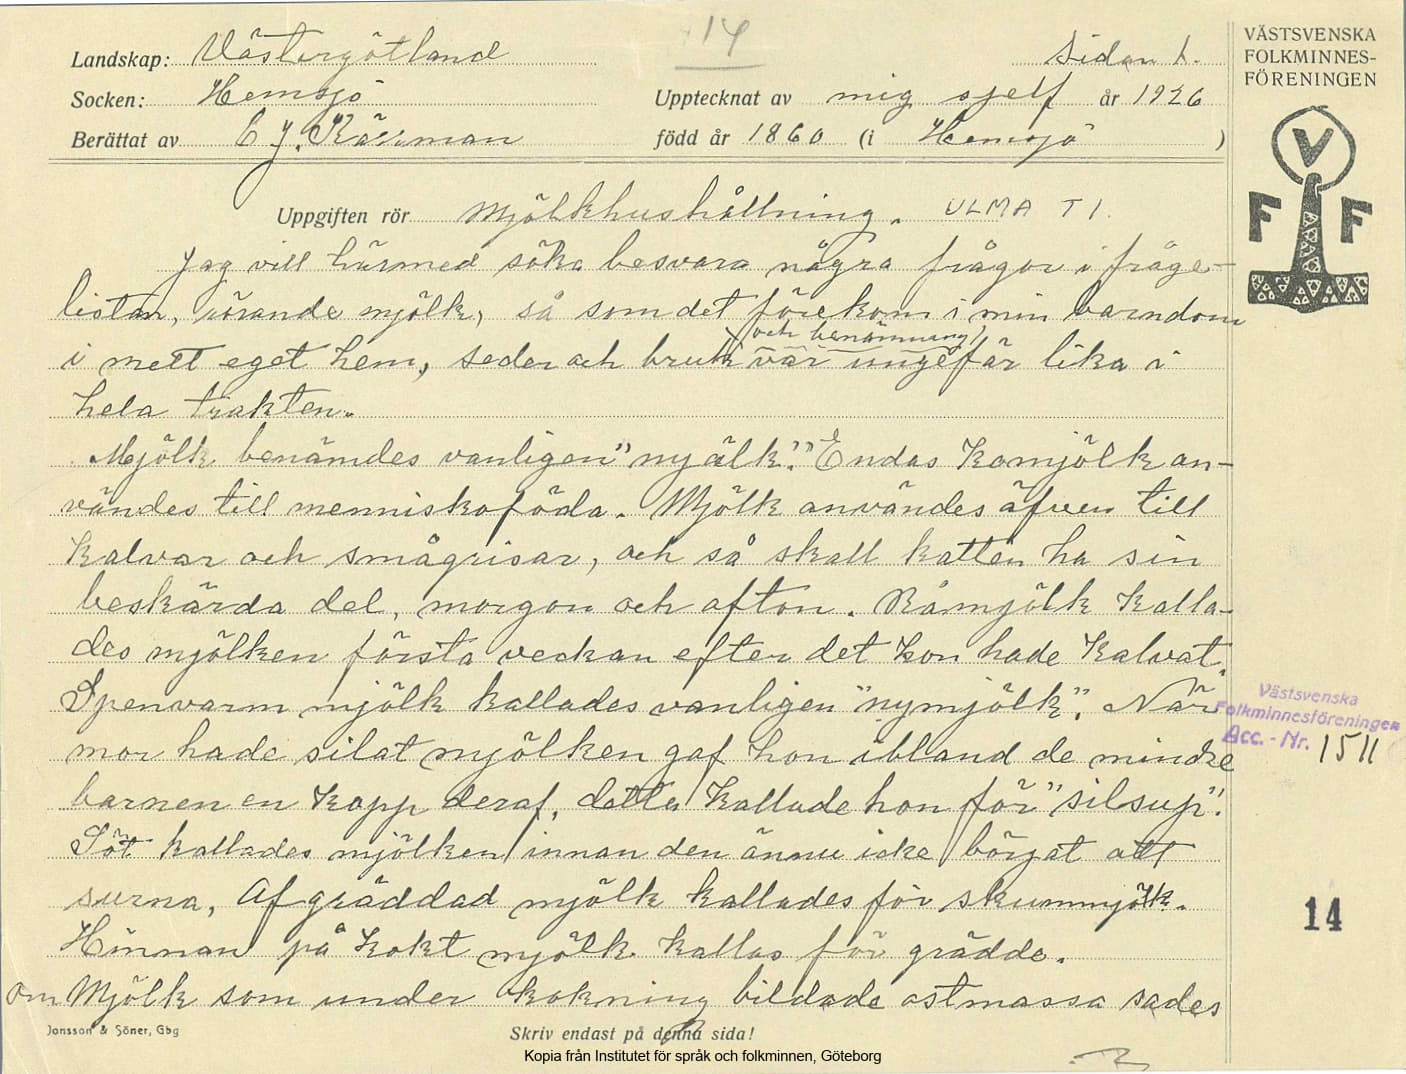 14
VÄSTSVENSKA
FOLKMINNES-
FÖRENINGEN
Landskap: Västergötland Sidan 1.
Socken: Hemsjö Upptecknat av mig sjelf år 1926
Berättat av C J. Kärrman född år 1860 (i Hemsjö )
V
F F
Uppgiften rör Mjölkhushållning. ULMA T 1.
Jag vill härmed söka besvara några frågor i fråge-
listan, rörande mjölk, så som det förekom i min barndom
och benämning
i mett eget hem, seder och bruk var ungefär lika i
hela trakten.
Mjölk benämdes vanligen "mjälk". Endas Komjölk an-
vändes till menniskoföda. Mjölk användes äfven till
Kalvar och smågrisar, och så skall katten ha sin
beskärda del, morgon och afton. Råmjölk Kalla-
des mjölken första veckan efter det kon hade Kalvat.
Spenvarm mjölk kallades vanligen "nymjölk". När
mor hade silat mjölken gaf hon ibland de mindre
barnen en Kopp deraf, detta Kallade hon för "silsup".
Söt kallades mjölken innan den ännu icke börjat att
surna, Afgräddad mjölk kallades för skummjölk.
Hinnan på Kokt mjölk kallas för grädde.
om Mjölk som under kokning bildade ostmassa sades
Västsvenska
Folkminnesföreningen
Acc. - Nr. 1511
14
Jonsson & Söner, Gbg
Skriv endast på denna sida!
Kopia från Institutet för språk och folkminnen, Göteborg